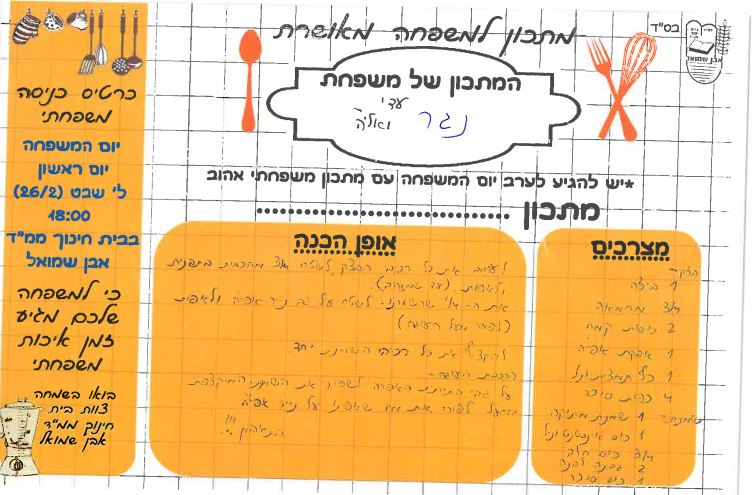 בס"ד
אבן שמואל
מתכון למשפחה מאושרת
המתכון של משפחת
עדי
ואליה
נגר
*יש להגיע לערב יום המשפחה עם מתכון משפחתי אהוב
מתכון
כרטיס כניסה
משפחתי
יום המשפחה
יום ראשון
ל' שבט (26/2)
18:00
בבית חינוך ממ"ד
אבן שמואל
כי למשפחה
שלכם מגיע
זמן איכות
משפחתי
בואו בשמחה
צוות בית
חינוך ממ"ד
אבן שמואל
מצרכים
הבצק-
1 ביצה
3/4 מחמאה
2 כוסות קמח
1 אבקת אפיה
1 כפי תמצית וניל
4 כפות סוכר
1 שמנת מתוקה
1 כוס אינסטנט וניל
3/4 כוס חלב
2 גבינה לבנה
1 כוס סוכר
אופן הכנה
לערבב את כל רכיבי הבצק, לשטח 3/4 מהכמות בתבנית
ולאפות
את ה-1/4 לשטח על גב נייר אפיה ולאפות
(לפירור מעל העוגה)
להקציף את כל רכיבי השמנת יחד.
הרכבת העוגה-
על גבי התחתית האפויה לשפוך את השמנת המוקצפת
ומעל לפורר את מה שאפינו על נייר אפיה
בתיאבון !!!